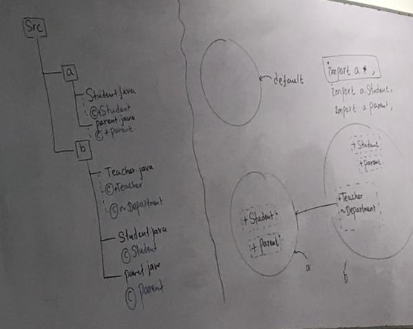 Src
a
Student.java
© +Student
parent.java
© + parent
b
Teacher.java
© +Teacher
© ~Department
Student.java
© Student
parent.java
© parent
default
import a.*;
import a.Student;
import a.parent;
+ Student
+ parent
+Teacher
~Department
+ Student
+ parent
a
b